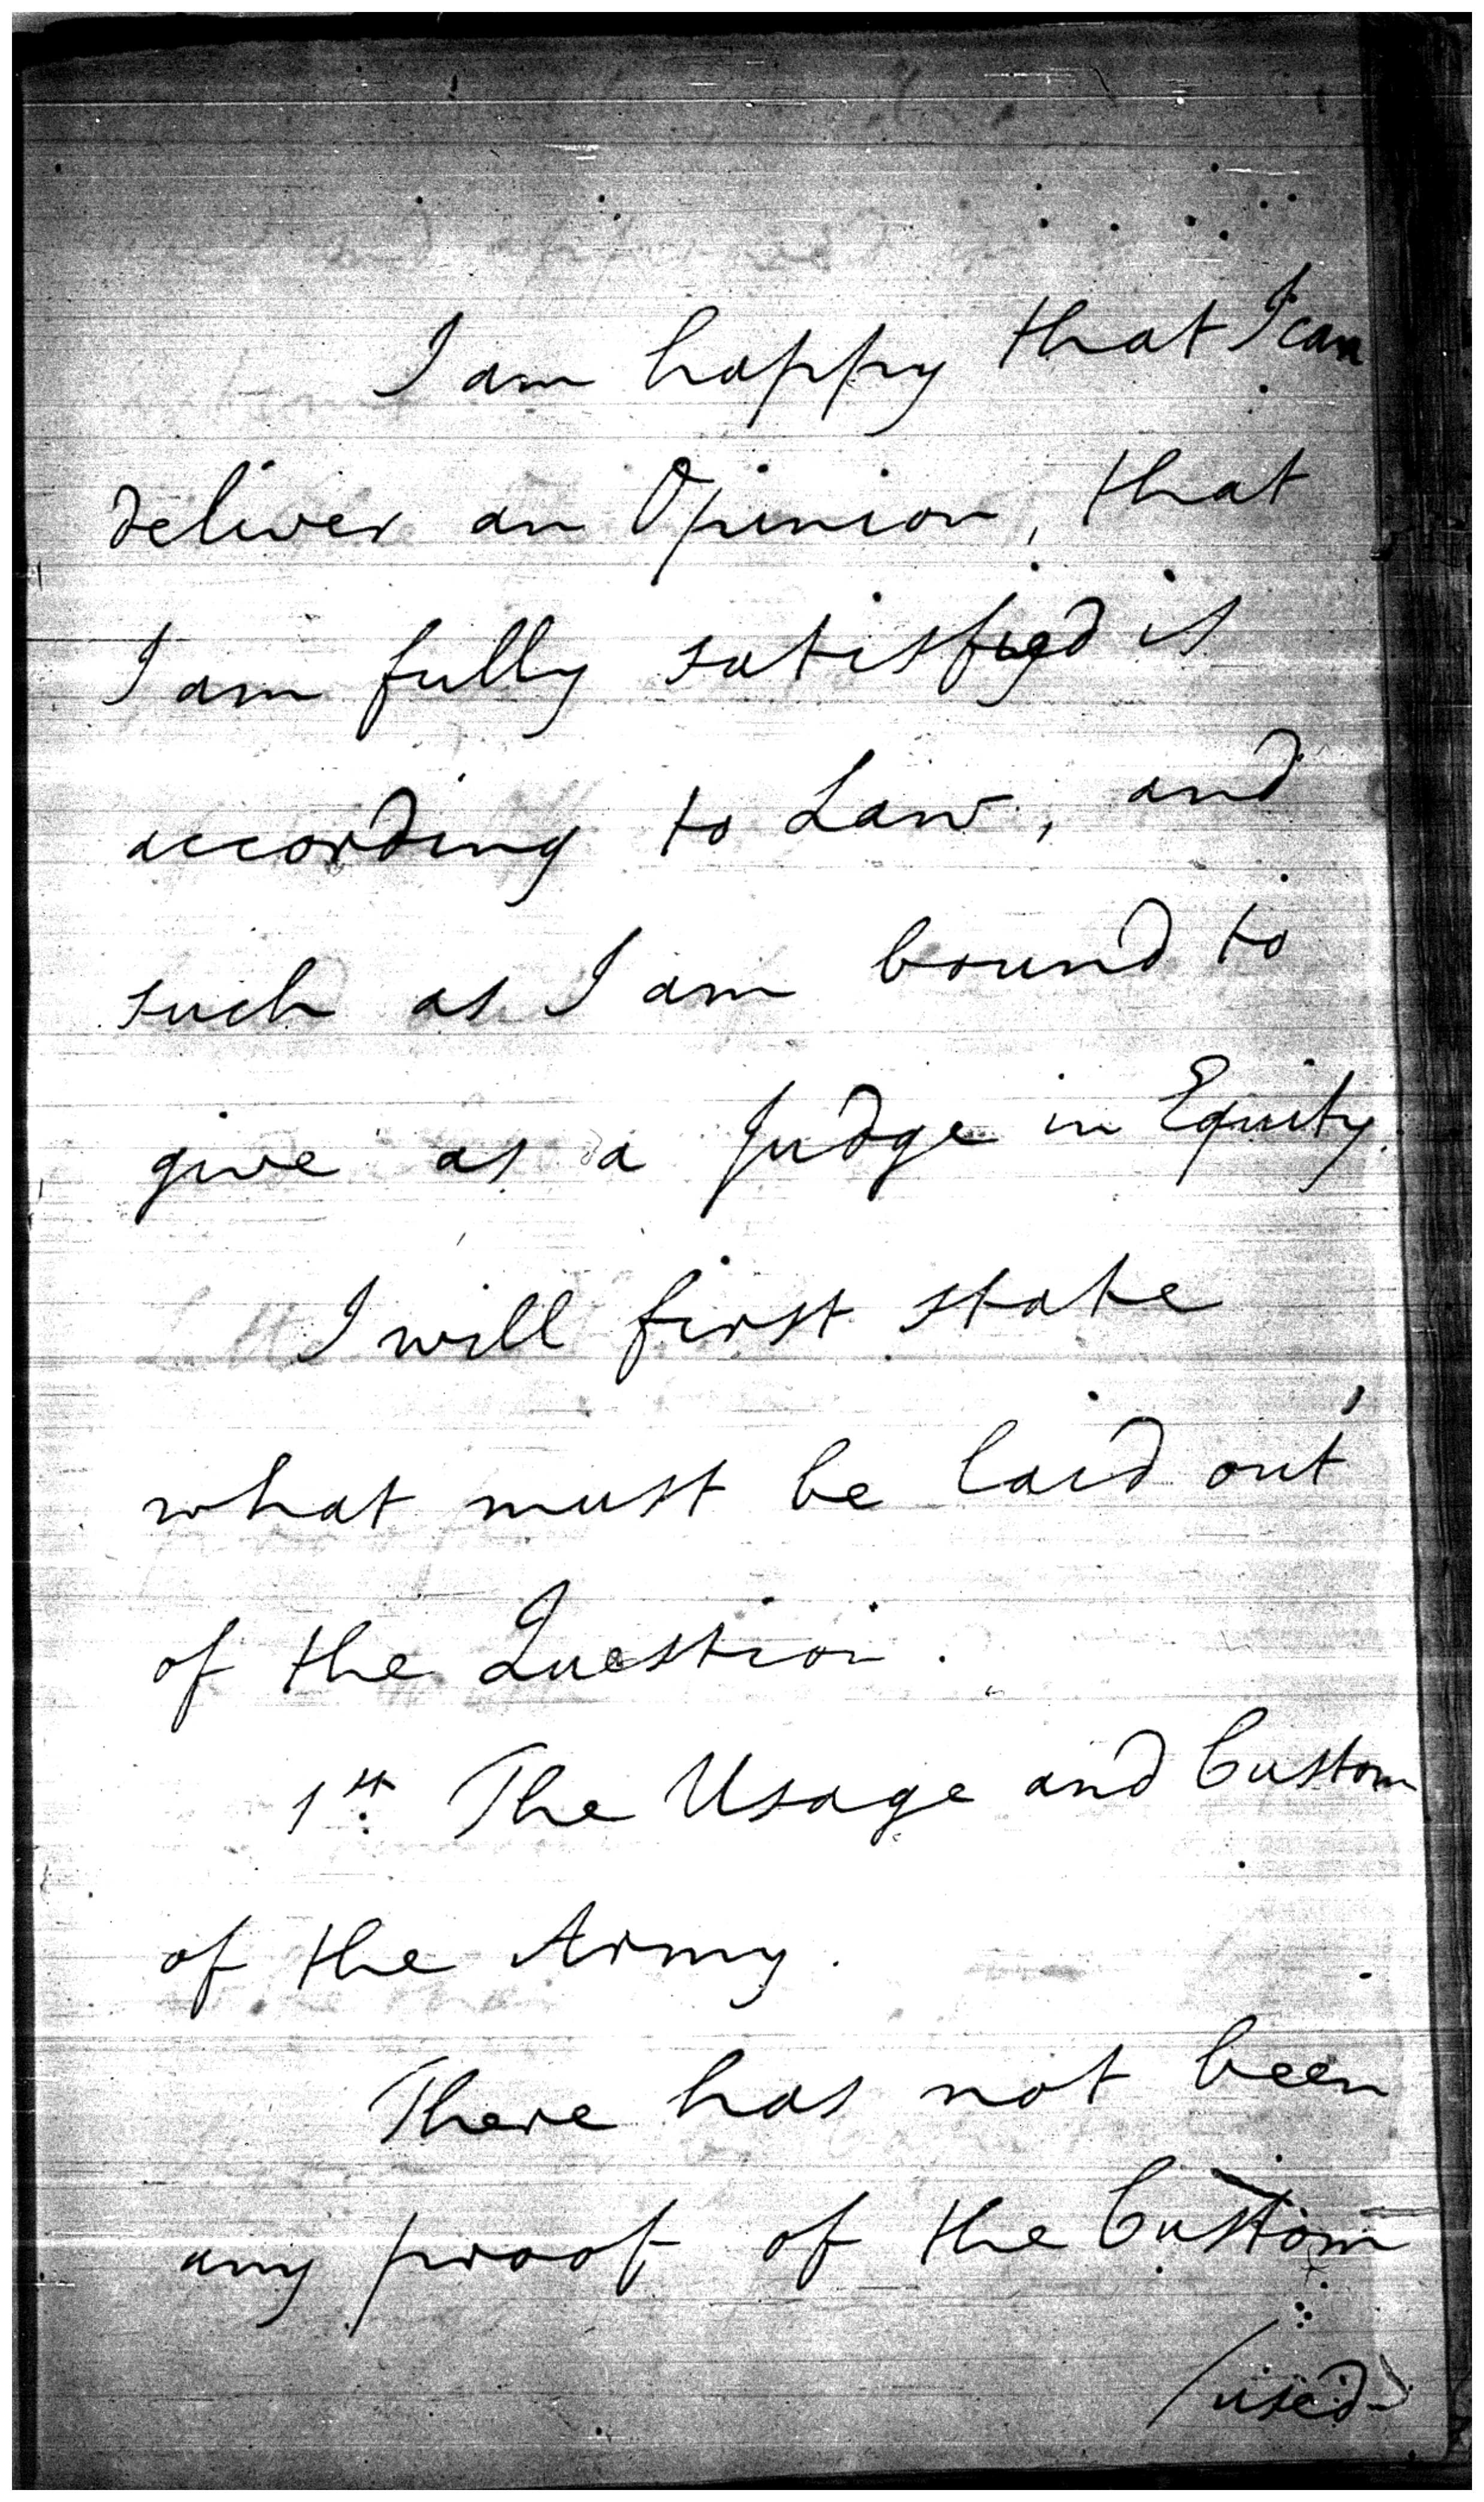 I am happy that I can
deliver an Opinion, that
I am fully satisfied is
according to Law, and
such as I am bound to
give as a Judge in Equity.
I will first state
what must be laid out
of the Question.
1st. The Usage and Custom
of the Army.
There has not been
any proof of the Custom
/used